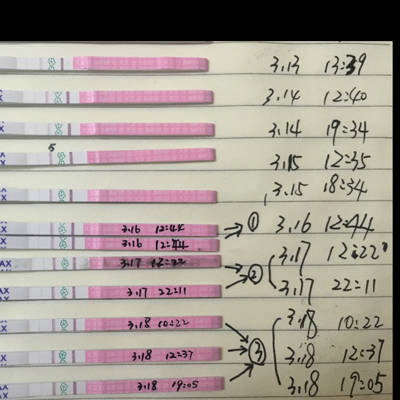 3.13 13:39
3.14 12:40
3.14 19:34
5
3.15 12:35
3.15 18:34
3.16 12:44 ① 3.16 12:44
3.16 12:44
3.17 12:22 ② 3.17 12:22
3.17 22:11 3.17 22:11
3.18 10:22 3.18 10:22
3.18 12:37 ③ 3.18 12:37
3.18 19:05 3.18 19:05